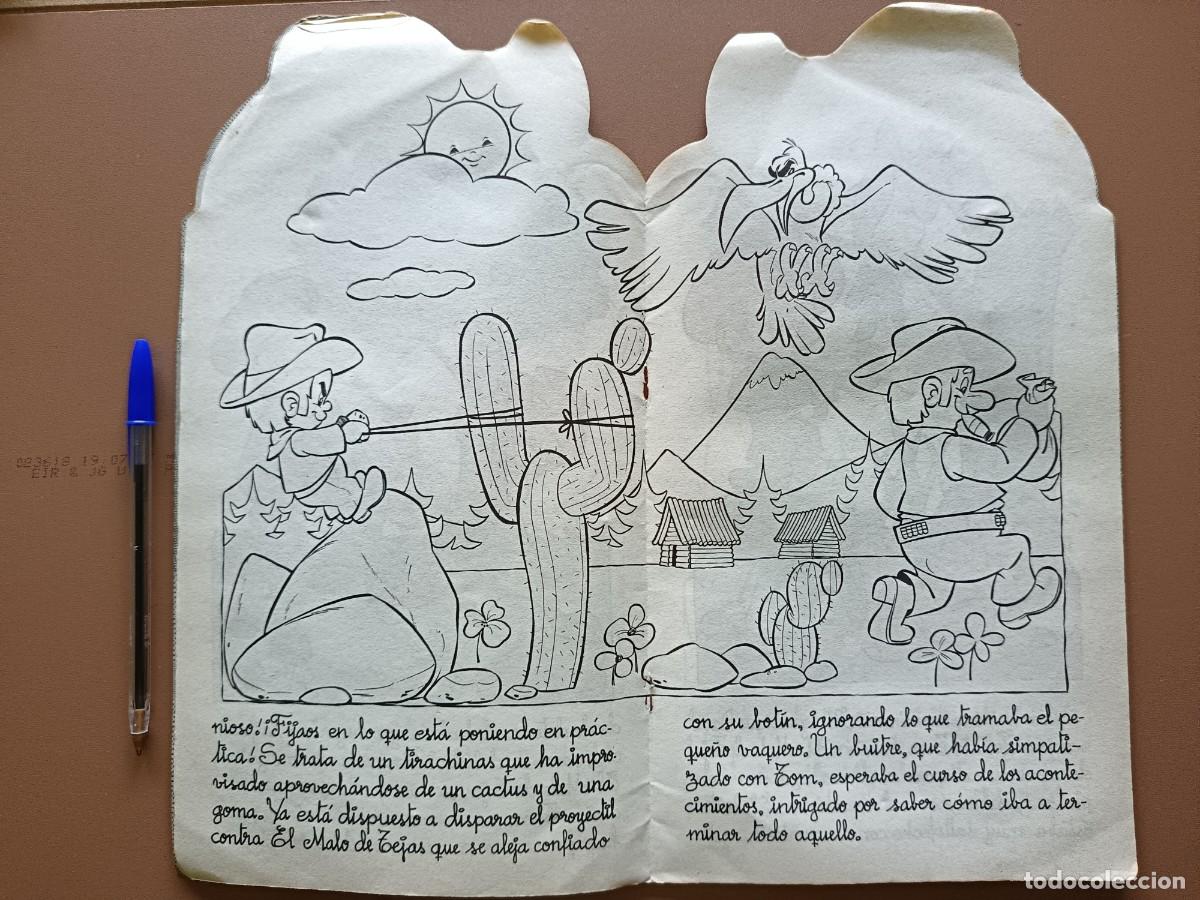 nioso! ¡Fijaos en lo que está poniendo en prác-
tica! Se trata de un tirachinas que ha impro-
visado aprovechándose de un cactus y de una
goma. Ya está dispuesto a disparar el proyectil
contra El Malo de Tejas que se aleja confiado
con su botín, ignorando lo que tramaba el pe-
queño vaquero. Un buitre, que había simpati-
zado con Tom, esperaba el curso de los aconte-
cimientos, intrigado por saber cómo iba a ter-
minar todo aquello.
todocoleccion